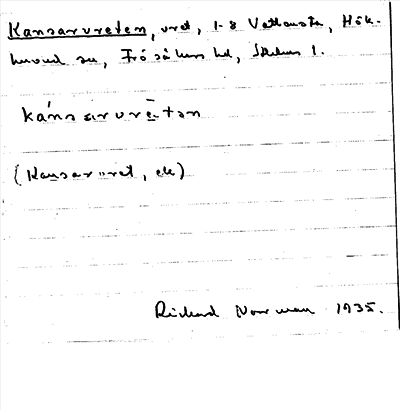 Kansarvreten, vret, 1-8 Vettansta, Hök-
huvud sn, Frösåkers hd, Sthlms l.
kánsarvrètən
(Kansarvret, ek)
Rickard Norrman 1935.